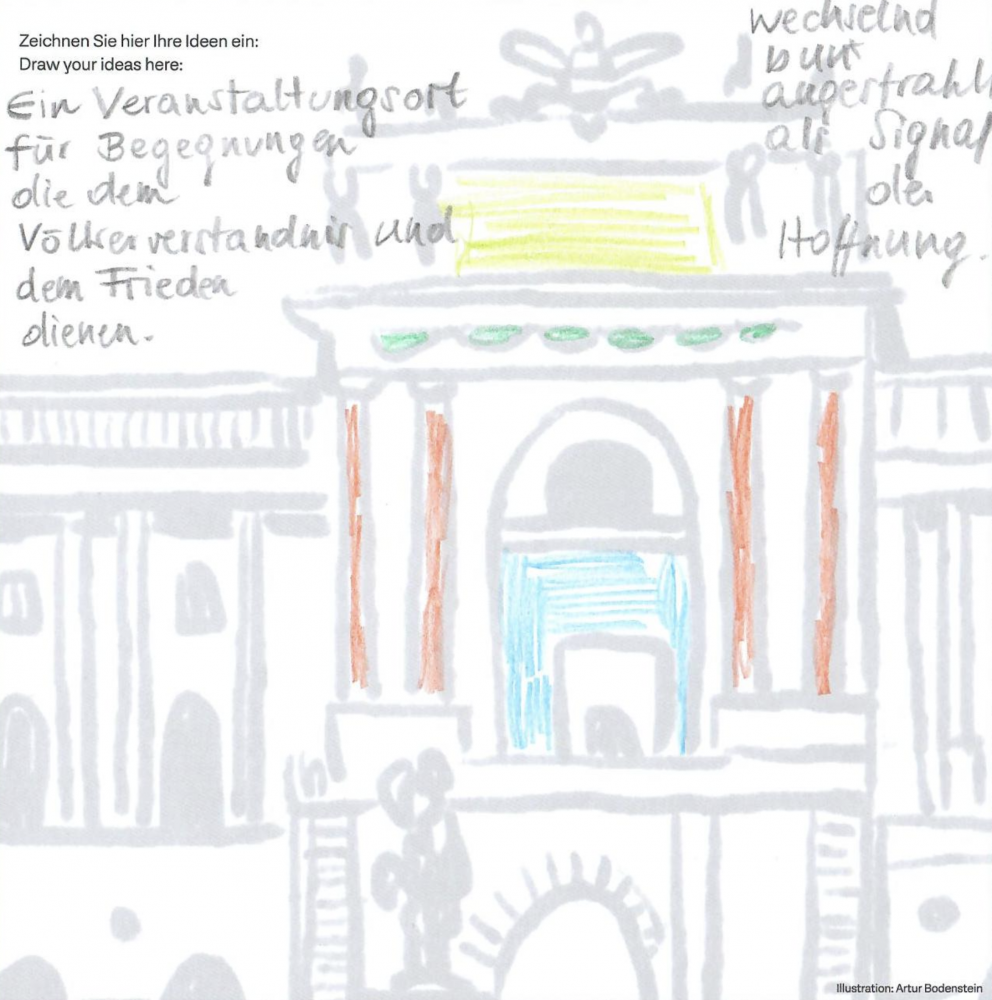 Zeichnen Sie hier Ihre Ideen ein:
Draw your ideas here:
Ein Veranstaltungsort
für Begegnungen
die dem
Völkerverständnis und
dem Frieden
dienen.
wechselnd
bunt
angestrahlt
als Signal
der
Hoffnung.
Illustration: Artur Bodenstein